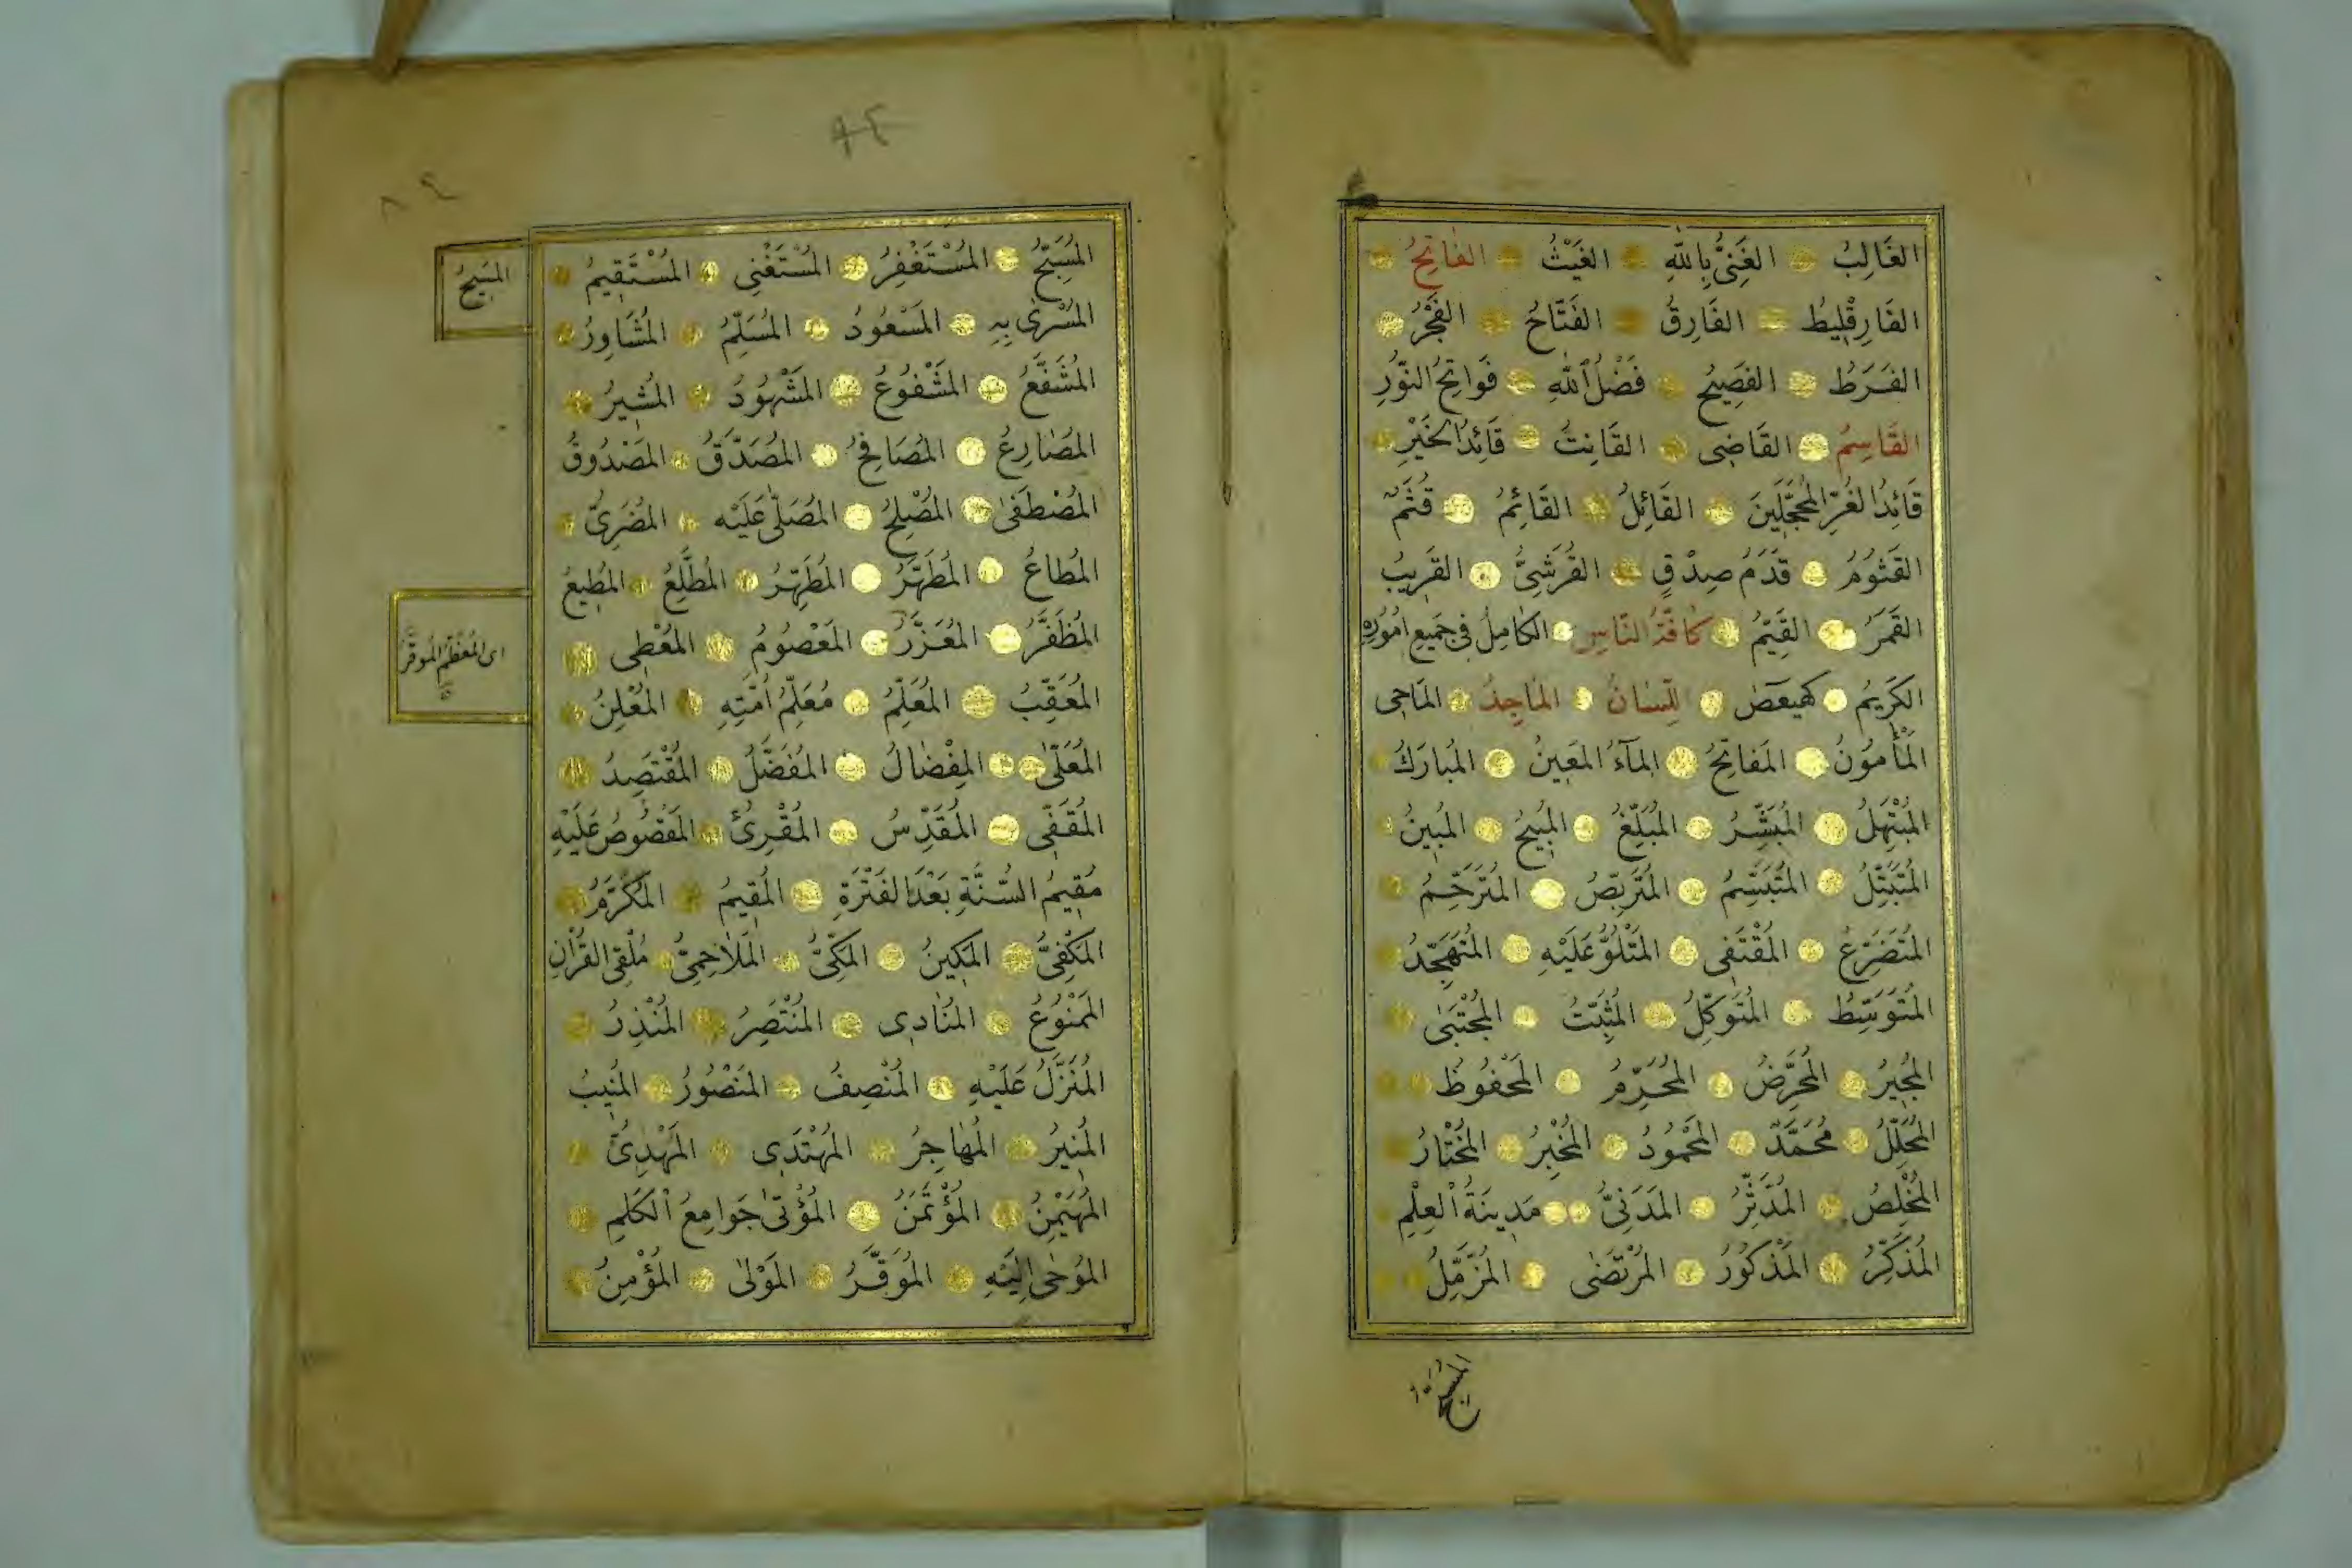 الغَالِبُ الغَنِىُّ بِاللّٰهِ الغَيْثُ الفَاتِحُ
الفَارِقْلِيطُ الفَارِقُ الفَتَّاحُ الفَجْرُ
الفَرَطُ الفَصِيحُ فَضْلُ اللّٰهِ فَوَاتِحُ النُّورِ
القَاسِمُ القَاضِى القَانِتُ قَائِدُ الخَيْرِ
قَائِدُ الغُرِّ المُحَجَّلِينَ القَائِلُ القَائِمُ قُثَمُ
القَثُومُ قَدَمُ صِدْقٍ القُرَشِىُّ القَرِيبُ
القَمَرُ القَيِّمُ كَافَّةُ النَّاسِ الكَامِلُ فِى جَمِيعِ امُورِهِ
الكَرِيمُ كهيعص اللِّسَانُ المَاجِدُ المَاحِى
المَأْمُونُ المَفَاتِحُ المَآءُ المَعِينُ المُبَارَكُ
المُبْتَهِلُ المُبَشِّرُ المُبَلِّغُ المُبِيحُ المُبِينُ
المُتَبَتِّلُ المُتَبَسِّمُ المُتَرَبِّصُ المُتَرَحِّمُ
المُتَضَرِّعُ المُقْتَفِى المَتْلُوُّ عَلَيْهِ المُتَهَجِّدُ
المُتَوَسِّطُ المُتَوَكِّلُ المُثَبِّتُ المُجْتَبٰى
المُجِيرُ المُحَرِّضُ المُحَرِّمُ المَحْفُوظُ
المُحَلِّلُ مُحَمَّدٌ المَحْمُودُ المُخْبِرُ المُخْتَارُ
المُخْلِصُ المُدَّثِّرُ المَدَنِىُّ مَدِينَةُ الْعِلْمِ
المُذَكِّرُ المَذْكُورُ المُرْتَضٰى المُزَّمِّلُ
المُسَبِّحُ
المُسَبِّحُ المُسْتَغْفِرُ المُسْتَغْنِى المُسْتَقِيمُ
المَسِيحُ
المُسْرٰى بِهِ المَسْعُودُ المُسَلِّمُ المُشَاوِرُ
المُشَفَّعُ المَشْفُوعُ المَشْهُودُ المُشِيرُ
المُصَارِعُ المُصَافِحُ المُصَدَّقُ المَصْدُوقُ
المُصْطَفٰى المُصْلِحُ المُصَلّٰى عَلَيْهِ المُضَرِىُّ
المُطَاعُ المُطَهَّرُ المُطَهِّرُ المُطَّلِعُ المُطِيعُ
المُظَفَّرُ المُعَزَّرُ المَعْصُومُ المُعْطِى
اى المُعَظَّمُ المُوَقَّرُ
المُعَقِّبُ المُعَلِّمُ مُعَلِّمُ اُمَّتِهِ المُعْلِنُ
المُعَلّٰى المِفْضَالُ المُفَضَّلُ المُقْتَصِدُ
المُقَفِّى المُقَدِّسُ المُقْرِئُ المَقْصُوصُ عَلَيْهِ
مُقِيمُ السُّنَّةِ بَعْدَ الفَتْرَةِ المُقِيمُ المُكَرَّمُ
المَكْفِىُّ المَكِينُ المَكِّىُّ المَلَاحِمِىُّ مُلْقِى القُرْاٰنِ
المَمْنُوعُ المُنَادِى المُنْتَصِرُ المُنْذِرُ
المُنَزَّلُ عَلَيْهِ المُنْصِفُ المَنْصُورُ المُنِيبُ
المُنِيرُ المُهَاجِرُ المُهْتَدِى المَهْدِىُّ
المُهَيْمِنُ المُؤْتَمَنُ المُؤْتٰى جَوَامِعَ الْكَلِمِ
المُوحٰى اِلَيْهِ المُوَقَّرُ المَوْلٰى المُؤْمِنُ